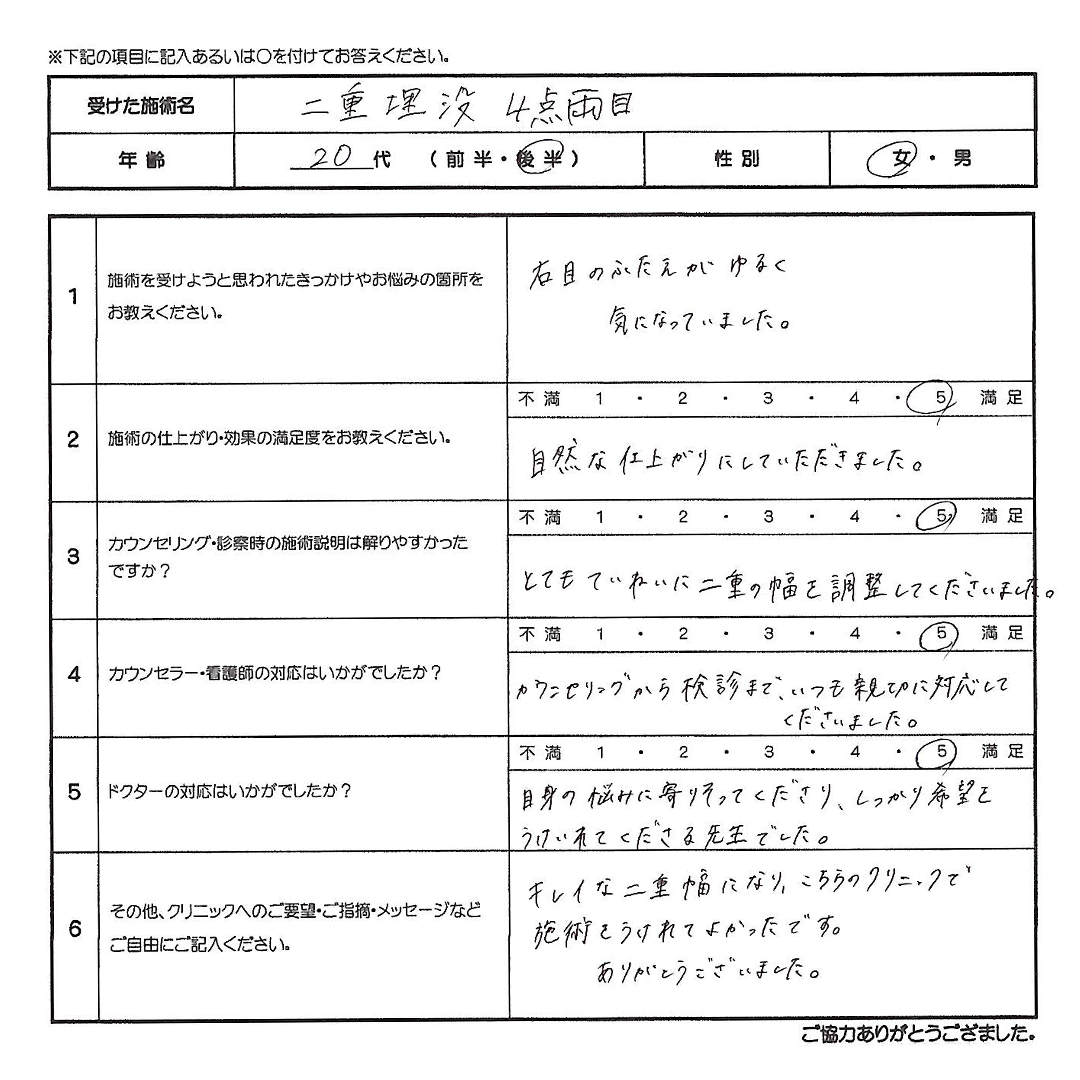 ※下記の項目に記入あるいは〇を付けてお答えください。
受けた施術名 二重埋没 4点両目
年齢 20代 (前半・後半) 性別 女・男
1 施術を受けようと思われたきっかけやお悩みの箇所を
お教えください。
右目のふたえがゆるく
気になっていました。
不満 1 ・ 2 ・ 3 ・ 4 ・ 5 満足
2 施術の仕上がり・効果の満足度をお教えください。
自然な仕上がりにしていただきました。
不満 1 ・ 2 ・ 3 ・ 4 ・ 5 満足
3 カウンセリング・診察時の施術説明は解りやすかった
ですか？
とてもていねいに二重の幅を調整してくださいました。
不満 1 ・ 2 ・ 3 ・ 4 ・ 5 満足
4 カウンセラー・看護師の対応はいかがでしたか？
カウンセリングから検診まで、いつも親切に対応して
くださいました。
不満 1 ・ 2 ・ 3 ・ 4 ・ 5 満足
5 ドクターの対応はいかがでしたか？
自身の悩みに寄りそってくださり、しっかり希望を
うけいれてくださる先生でした。
6 その他、クリニックへのご要望・ご指摘・メッセージなど
ご自由にご記入ください。
キレイな二重幅になり、こちらのクリニックで
施術をうけれてよかったです。
ありがとうございました。
ご協力ありがとうござました。